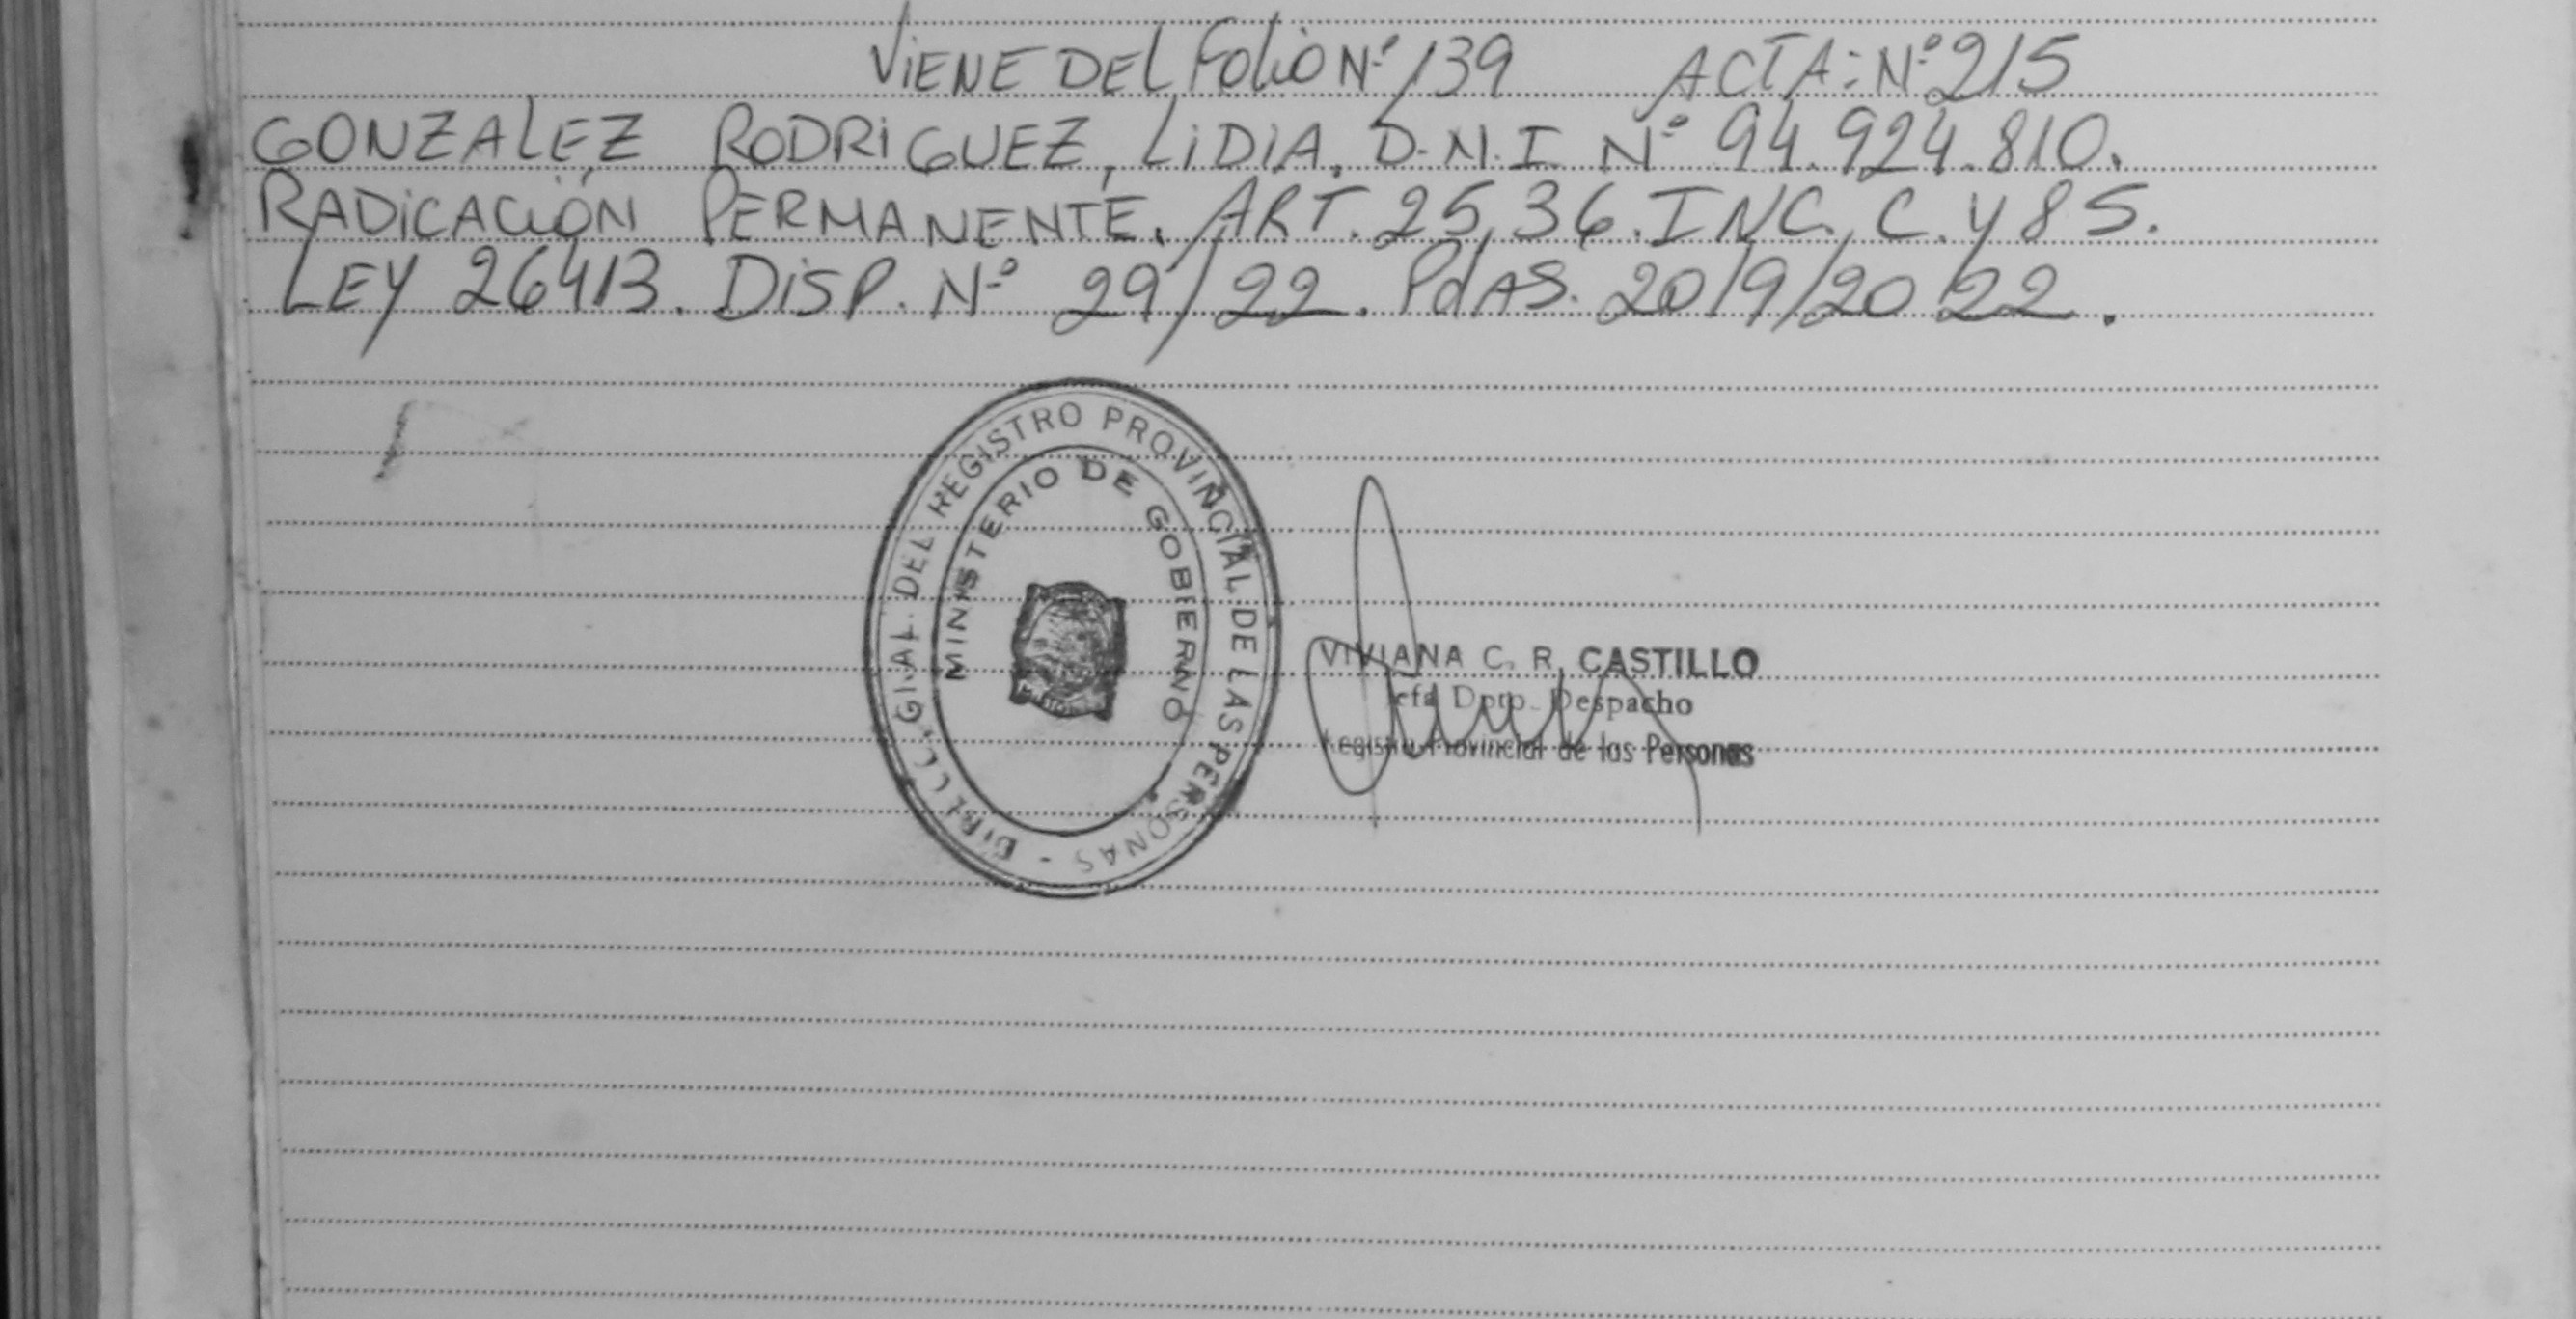 ViENE DEL Folio Nº 139 ACTA: Nº 215
GONZALEZ RODRiGUEZ, LiDiA. D.N.I. Nº 94.924.810.
RADiCACiÓN PERMANENTE. ART. 25, 36. INC. C. y 85.
LEY 26413. DiSP. Nº 29/22. PdAS. 20/9/2022.
DEL REGISTRO PROVINCIAL DE LAS PERSONAS -
MINISTERIO DE GOBIERNO
VIVIANA C. R. CASTILLO
Jefa Dpto. Despacho
Registro Provincial de las Personas